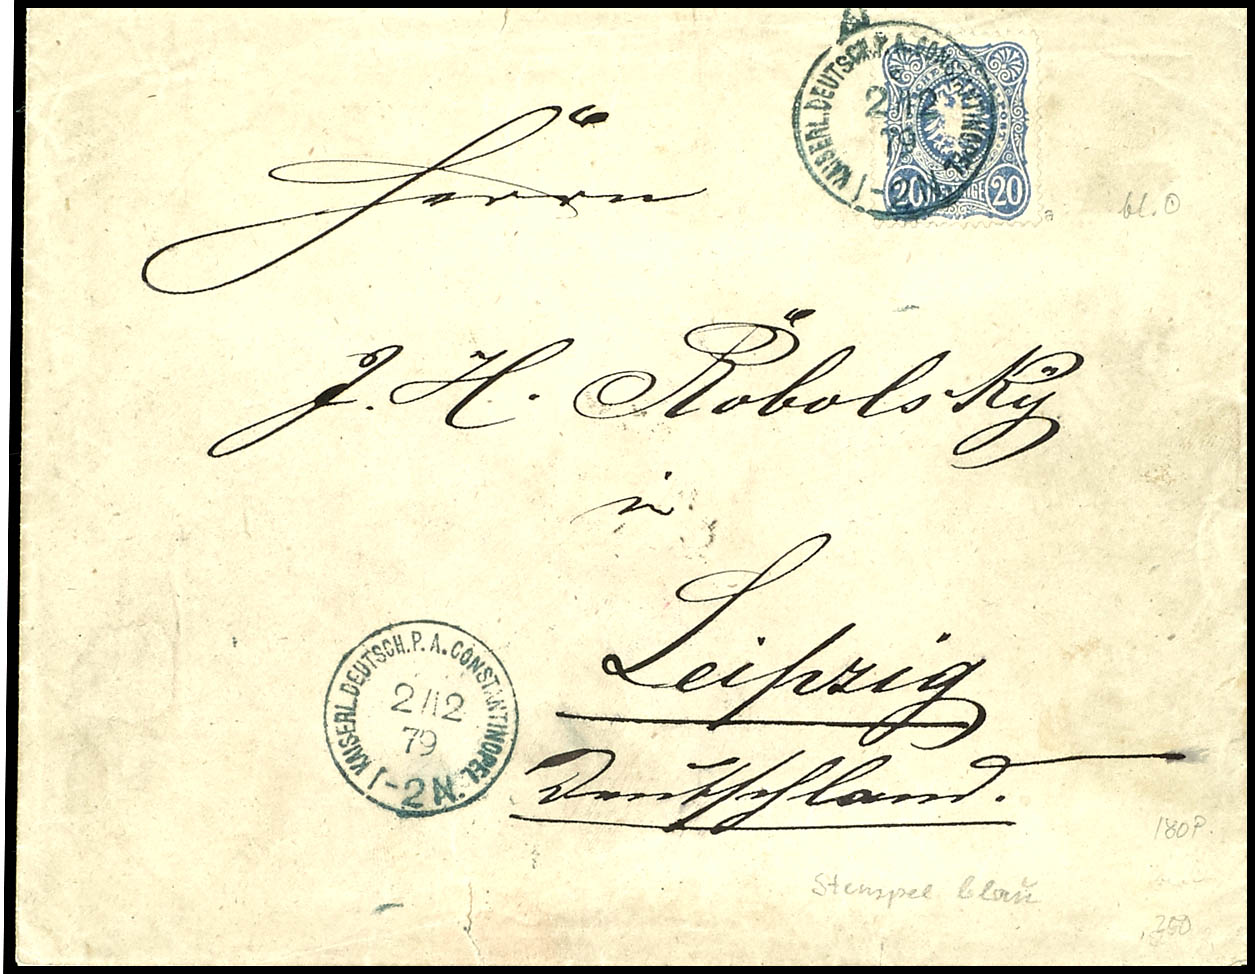 KAISERL. DEUTSCH. P. A. CONSTANTINOPEL
2/12
79
1-2N.
20 20
a
bl. O
Herrn
J. H. Robolsky
in
Leipzig
Deutschland.
KAISERL. DEUTSCH. P. A. CONSTANTINOPEL
2/12
79
1-2N.
180 P.
Stempel blau